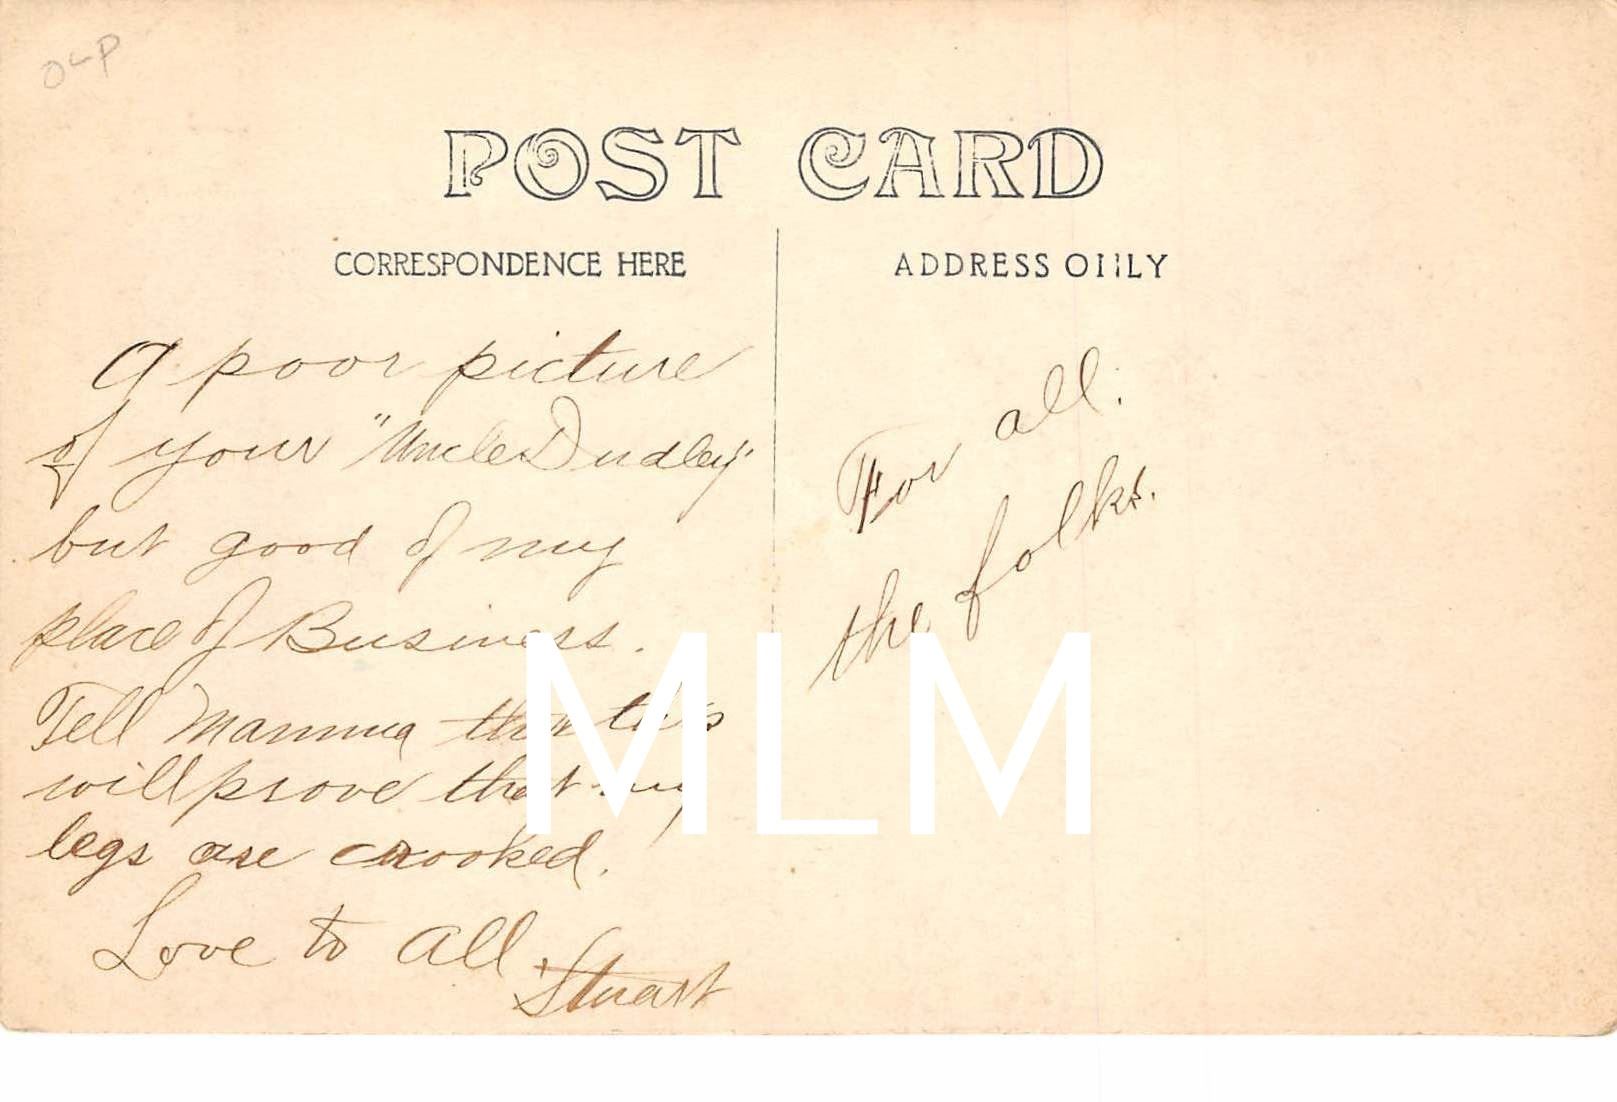 OLP
POST CARD
CORRESPONDENCE HERE
ADDRESS ONLY
A poor picture
of your "Uncle Dudley"
but good of my
place of Business.
Tell Mamma that this
will prove that my
legs are crooked.
Love to all
Stuart
For all.
the folks.
MLM